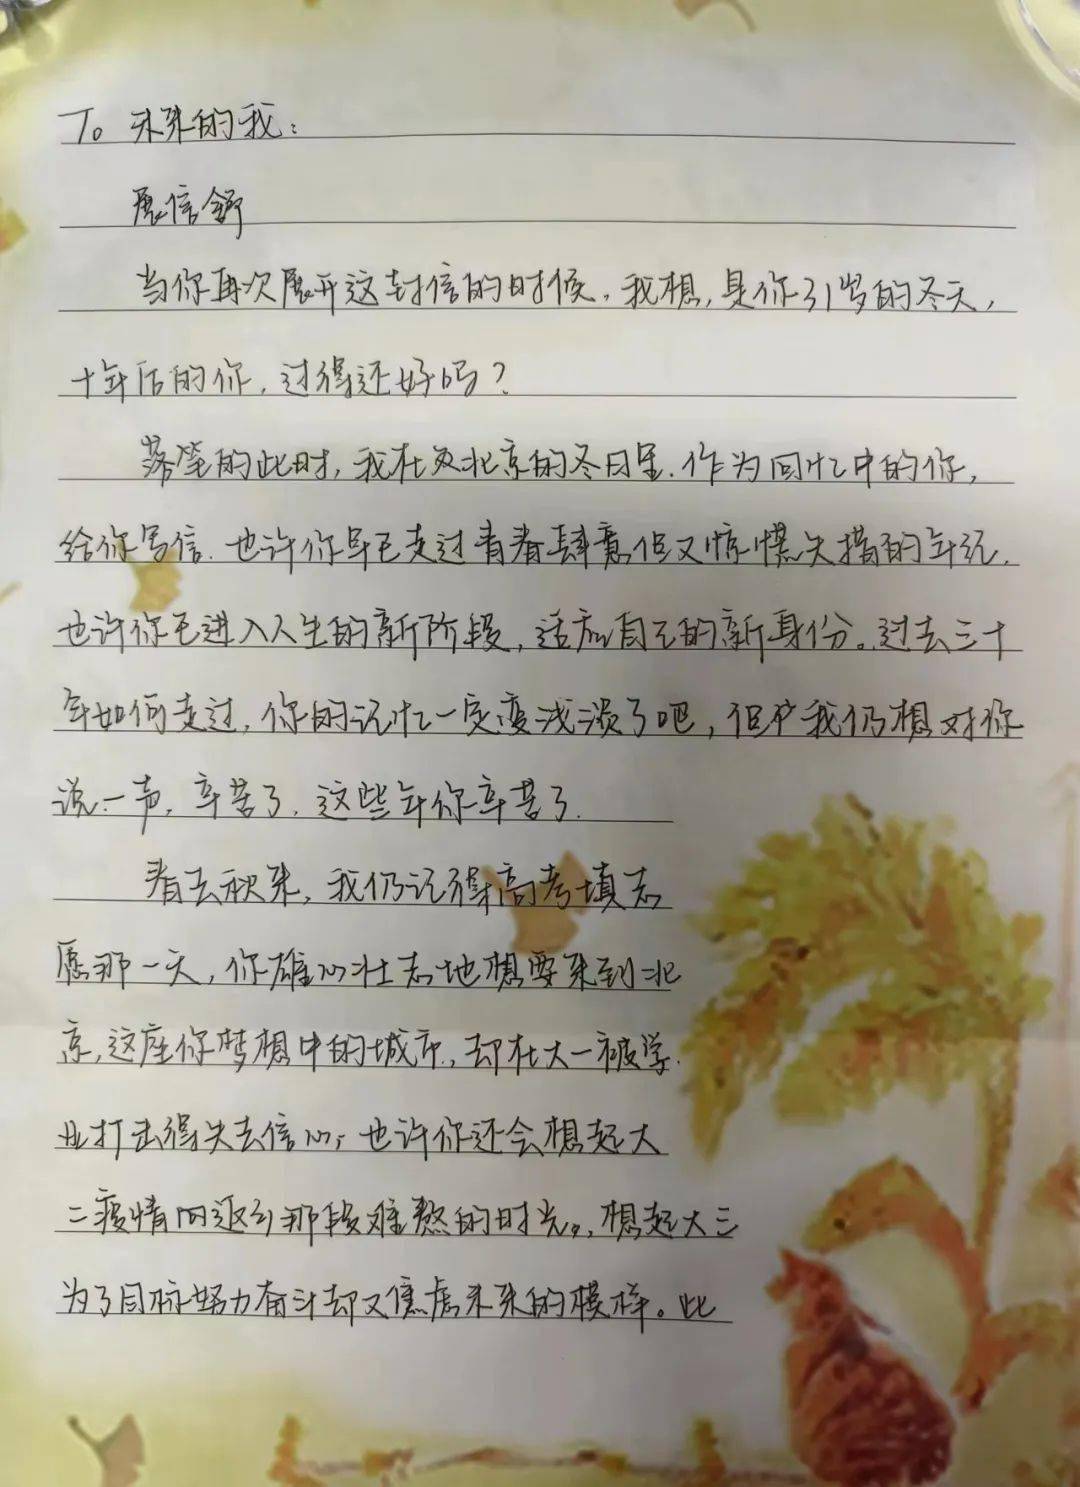 To 未来的我：
展信舒
当你再次展开这封信的时候，我想，是你31岁的冬天，
十年后的你，过得还好吗？
落笔的此时，我在这北京的冬日里，作为回忆中的你，
给你写信。也许你早已走过青春肆意但又惊慌失措的年纪，
也许你已进入人生的新阶段，适应自己的新身份。过去三十
年如何走过，你的记忆一定变浅淡了吧，但我仍想对你
说一声，辛苦了，这些年你辛苦了。
春去秋来，我仍记得高考填志
愿那一天，你雄心壮志地想要来到北
京，这座你梦想中的城市，却在大一被学
业打击得失去信心，也许你还会想起大
二疫情网返的那段难熬的时光。想起大三
为了目标努力奋斗却又焦虑未来的模样。此